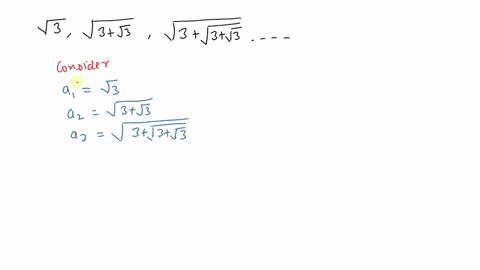 √3 , √(3+√3) , √(3+√(3+√3)) ----
Consider
a₁ = √3
a₂ = √(3+√3)
a₃ = √(3+√(3+√3))